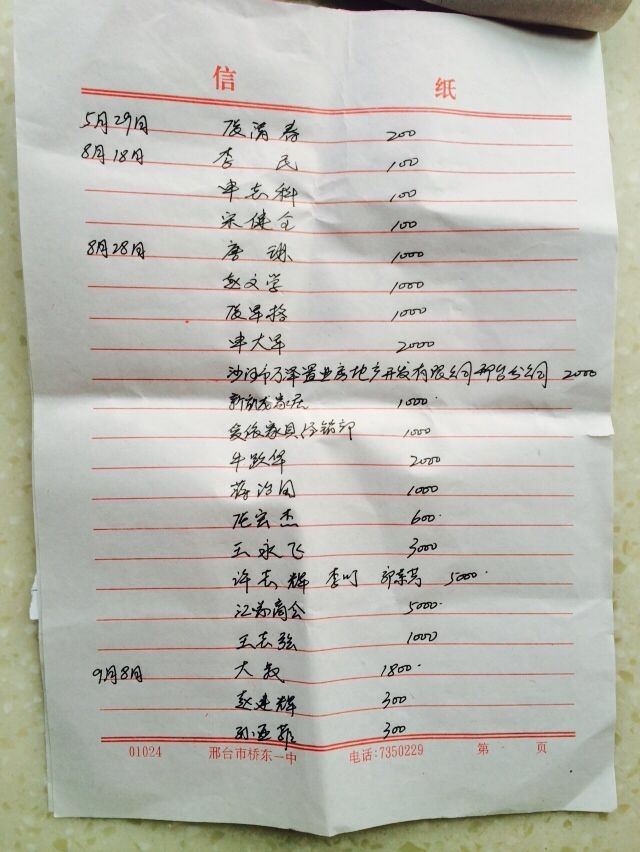 信 纸
5月29日 张满春 200
8月18日 李民 100
申志科 100
宋健全 100
8月28日 唐琳 1000
赵文学 1000
张军格 1000
申大军 2000
沙河市万泽置业房地产开发有限公司邢台分公司 2000
家居 1000
家具经销部 1000
牛跃华 2000
蒋治国 1000
张宏杰 600
王永飞 3000
许志辉 李 5000
江苏商会 5000
王志强 1000
9月8日 大毅 1800
赵建辉 300
孙亚菲 300
01024 邢台市桥东一中 电话:7350229 第 页